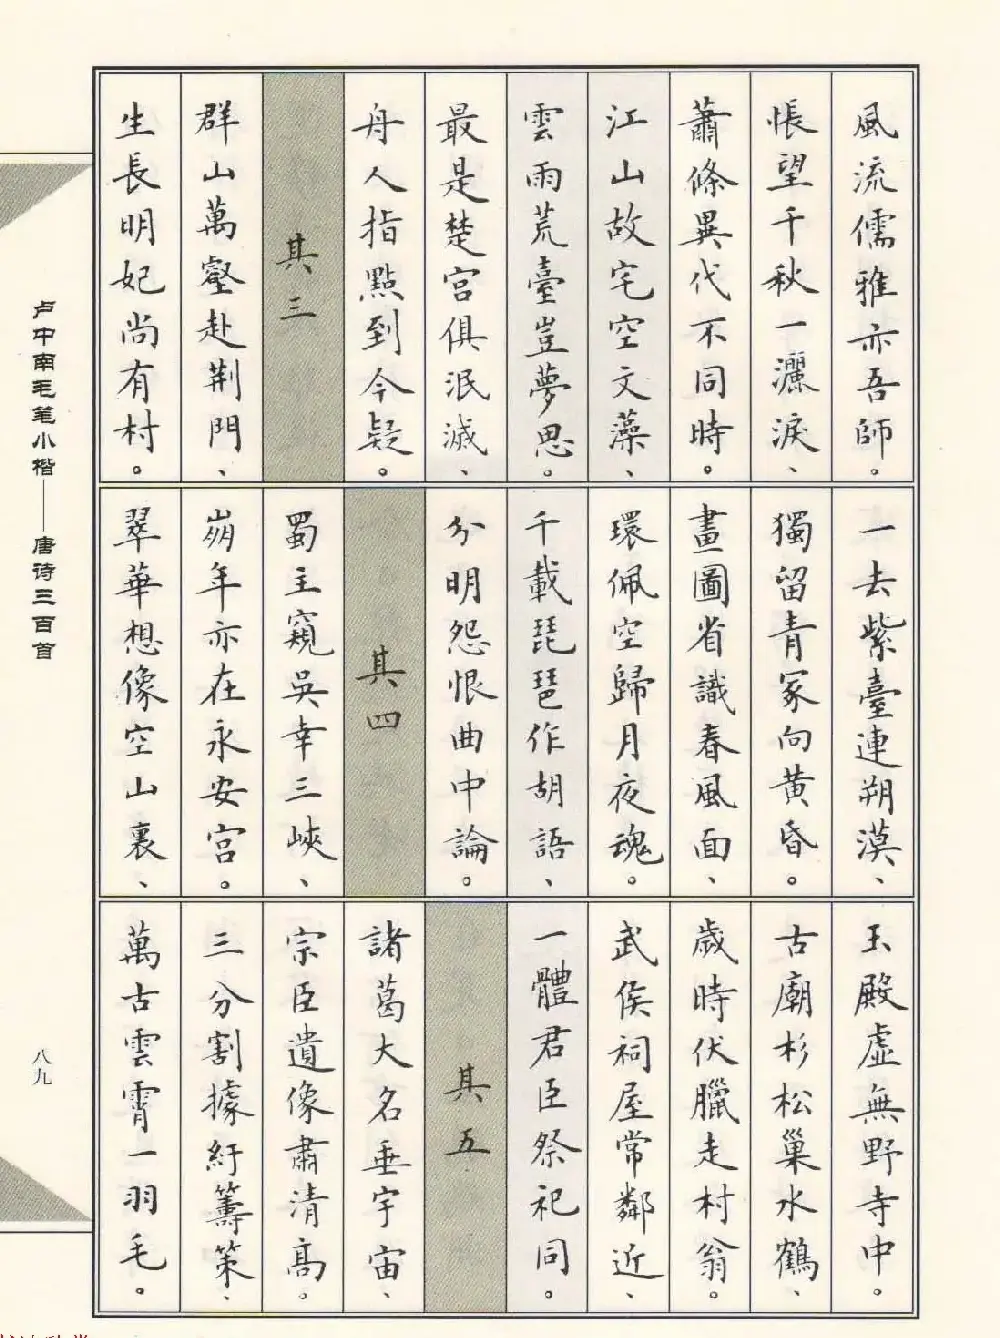 風流儒雅亦吾師。
悵望千秋一灑淚、
蕭條異代不同時。
江山故宅空文藻、
雲雨荒臺豈夢思。
最是楚宮俱泯滅、
舟人指點到今疑。
其三
群山萬壑赴荆門、
生長明妃尚有村。
一去紫臺連朔漠、
獨留青冢向黄昏。
畫圖省識春風面、
環佩空歸月夜魂。
千載琵琶作胡語、
分明怨恨曲中論。
其四
蜀主窺吳幸三峽、
崩年亦在永安宮。
翠華想像空山裏、
玉殿虛無野寺中。
古廟杉松巢水鶴、
歲時伏臘走村翁。
武侯祠屋常鄰近、
一體君臣祭祀同。
其五
諸葛大名垂宇宙、
宗臣遺像肅清高。
三分割據紆籌策、
萬古雲霄一羽毛。
卢中南毛笔小楷——唐诗三百首
八九